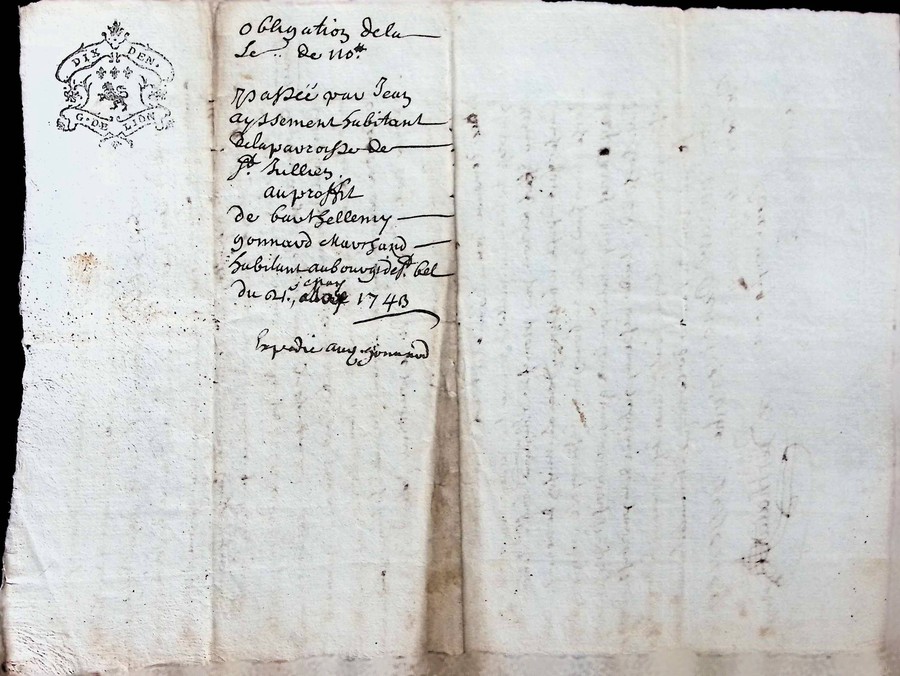 DIX DEN.
G. DE LION
obligation dela
Se. de 110 tt
passeé par Jean
ayssement habitant
delaparroisse de
st Jullien
au proffit
de barthellemy
gonnard Marchand
habitant aubourg de st. bel
du 21e, may 1743
Expedié aud. gonnard